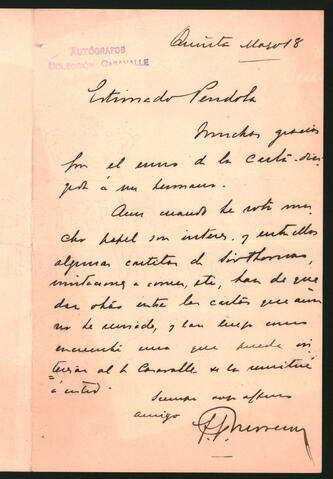 AUTÓGRAFOS
COLECCIÓN CARAVALLE
Quinta Marzo 18
Estimado Pendola
Muchas gracias
por el envio de la carta diri
gida á mi hermano.
Aun cuando he roto mu
cho papel sin interes y entre ellos
algunas cartitas de
invitaciones a comer, etc, han de que
dar otras entre las cartas que aun
no he revisado, y tan luego como
encuentre una que pueda in
teresar al S. Caravalle se la remitiré
á usted.
Siempre suyo affmo
amigo